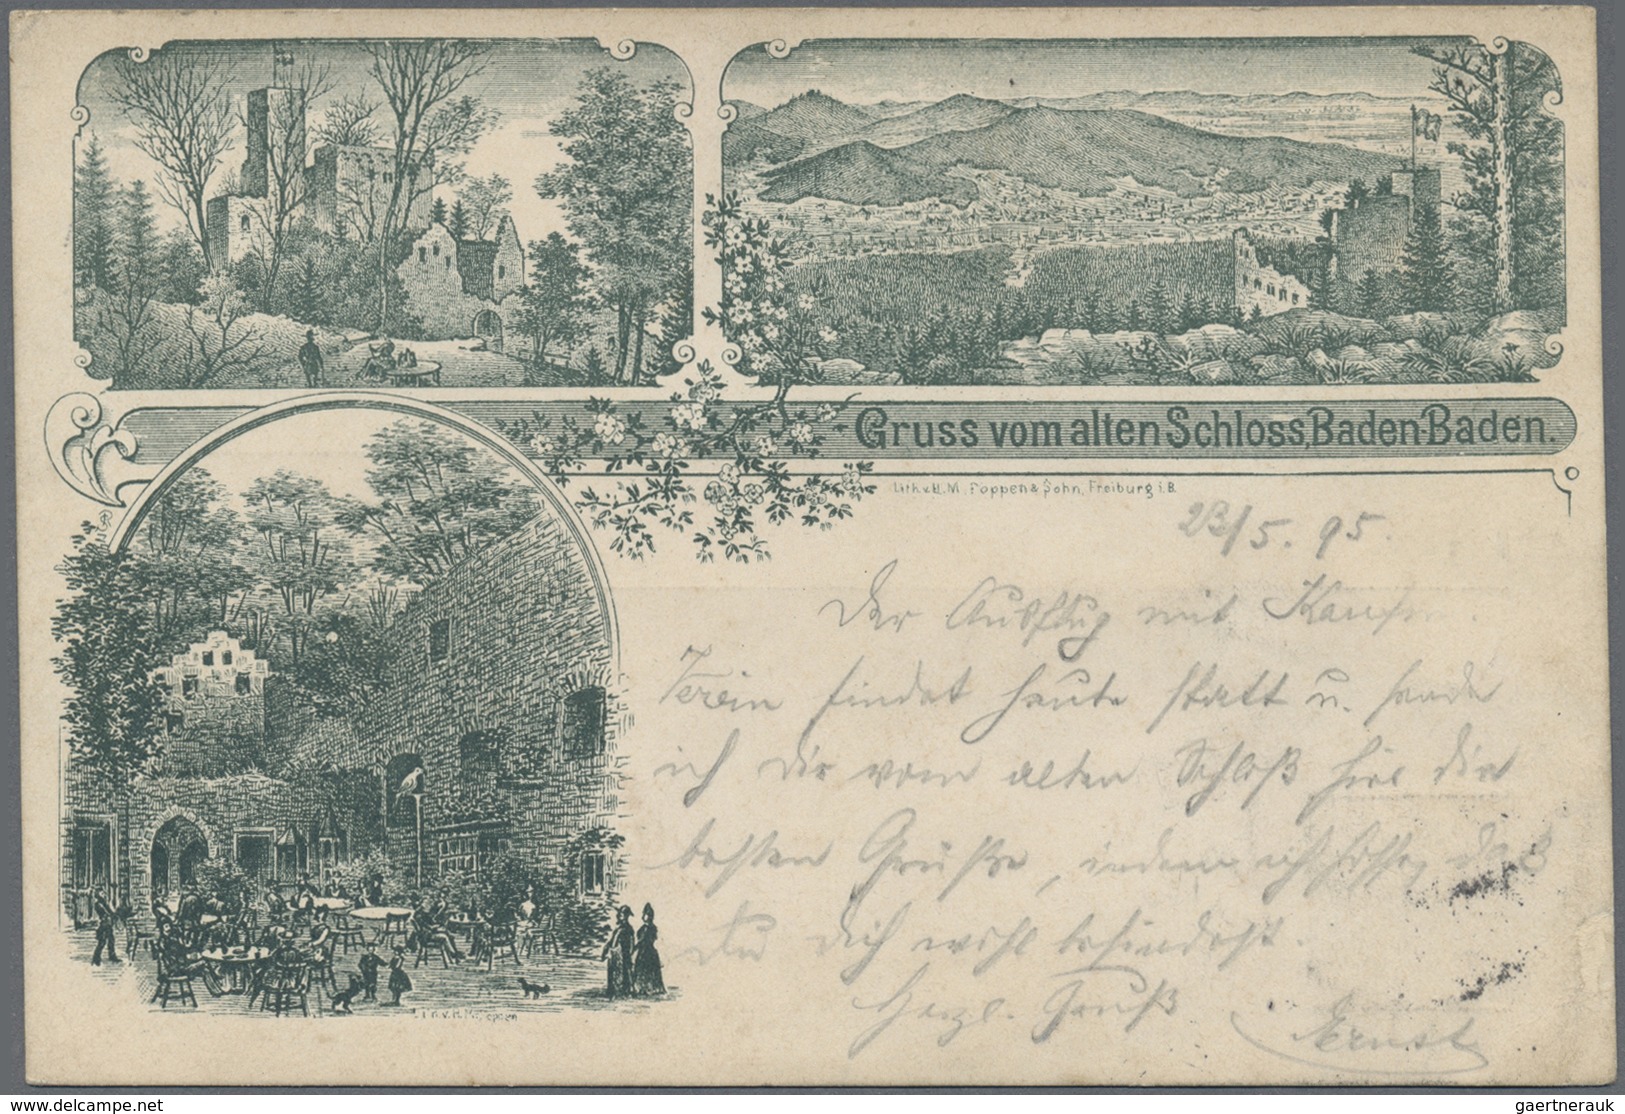 Gruss vom alten Schloss, Baden-Baden.
Lith. v. H. M. Poppen & Sohn, Freiburg i. B.
23/5. 95.
Der Ausflug mit Kaufm.
Verein findet heute statt u. sende
ich Dir vom alten Schloß hier die
besten Grüße, indem ich hoffe, daß
Du Dich wohl befindest.
Herzl. Gruß
Ernst
Lith. v. H. M. Poppen
delcampe.net
gaertnerauk